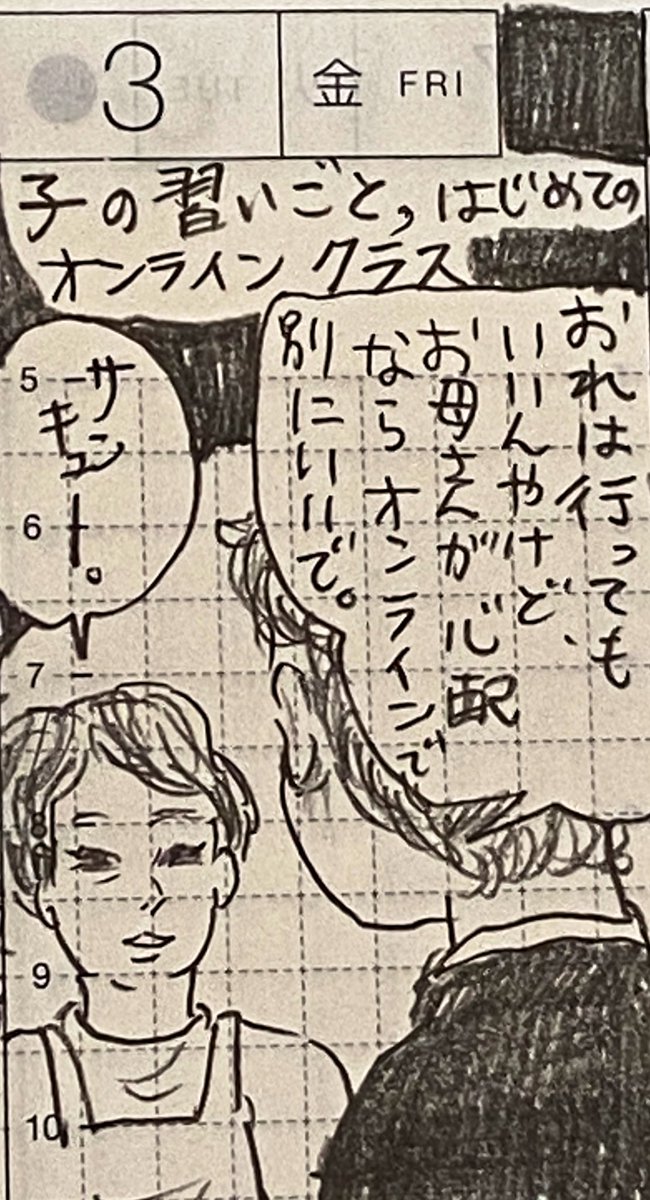 3
金 FRI
子の習いごと、はじめての
オンラインクラス
おれは行っても
いいんやけど、
お母さんが心配
なら オンラインで
別にいいで。
サン
キュー。
5
6
7
8
9
10